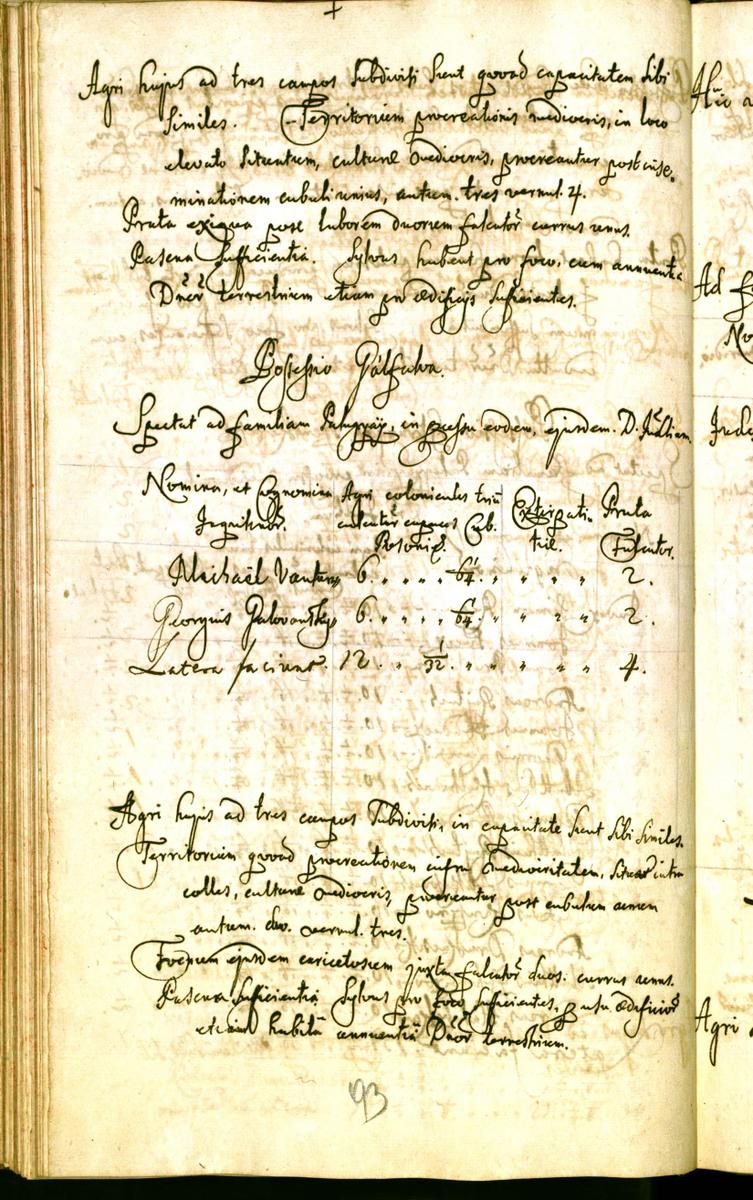 Agri hujus ad tres campos Subdivisi Sunt quoad capacitatem Sibi
Similes. Territorium procreationis mediocris, in loco
elevato Situatum, culturæ mediocris, procreantur post
minationem cubuli unius, autum. tres vernal. 4.
Prata exigua post laborem duorum falcator currus unus.
Pascua Sufficientia. Sylvas habent pro foco, cum annuentia
Dnor terrestrium etiam pro ædificijs Suficientes.
Possessio Pálfalva.
Spectat ad familiam in eodem, ejusdem D. Judlium.
Nomina, et Cognomina Agri colonicales trium
Cub. Extirpati- Prata
Posonien. tiæ. Falcator.
Michaël 6. 1/64. 2.
Georgius 6. 1/64. 2.
Latera faciunt. 12. 1/32. 4.
Agri hujus ad tres campos Subdivisi, in capacitate Sunt Sibi Similes.
Territorium quoad procreationem infra mediocritatem, intra
colles, culturæ mediocris, procreantur post cubulum unum
autum. duo. vernal. tres.
Foenum ejusdem caricetosum juxta falcator duos. currus unus.
Pascua Sufficientia Sylvas pro foco Sufficientes, usu ædificior
etiam habita annuentia Dnor terrestrium.
93